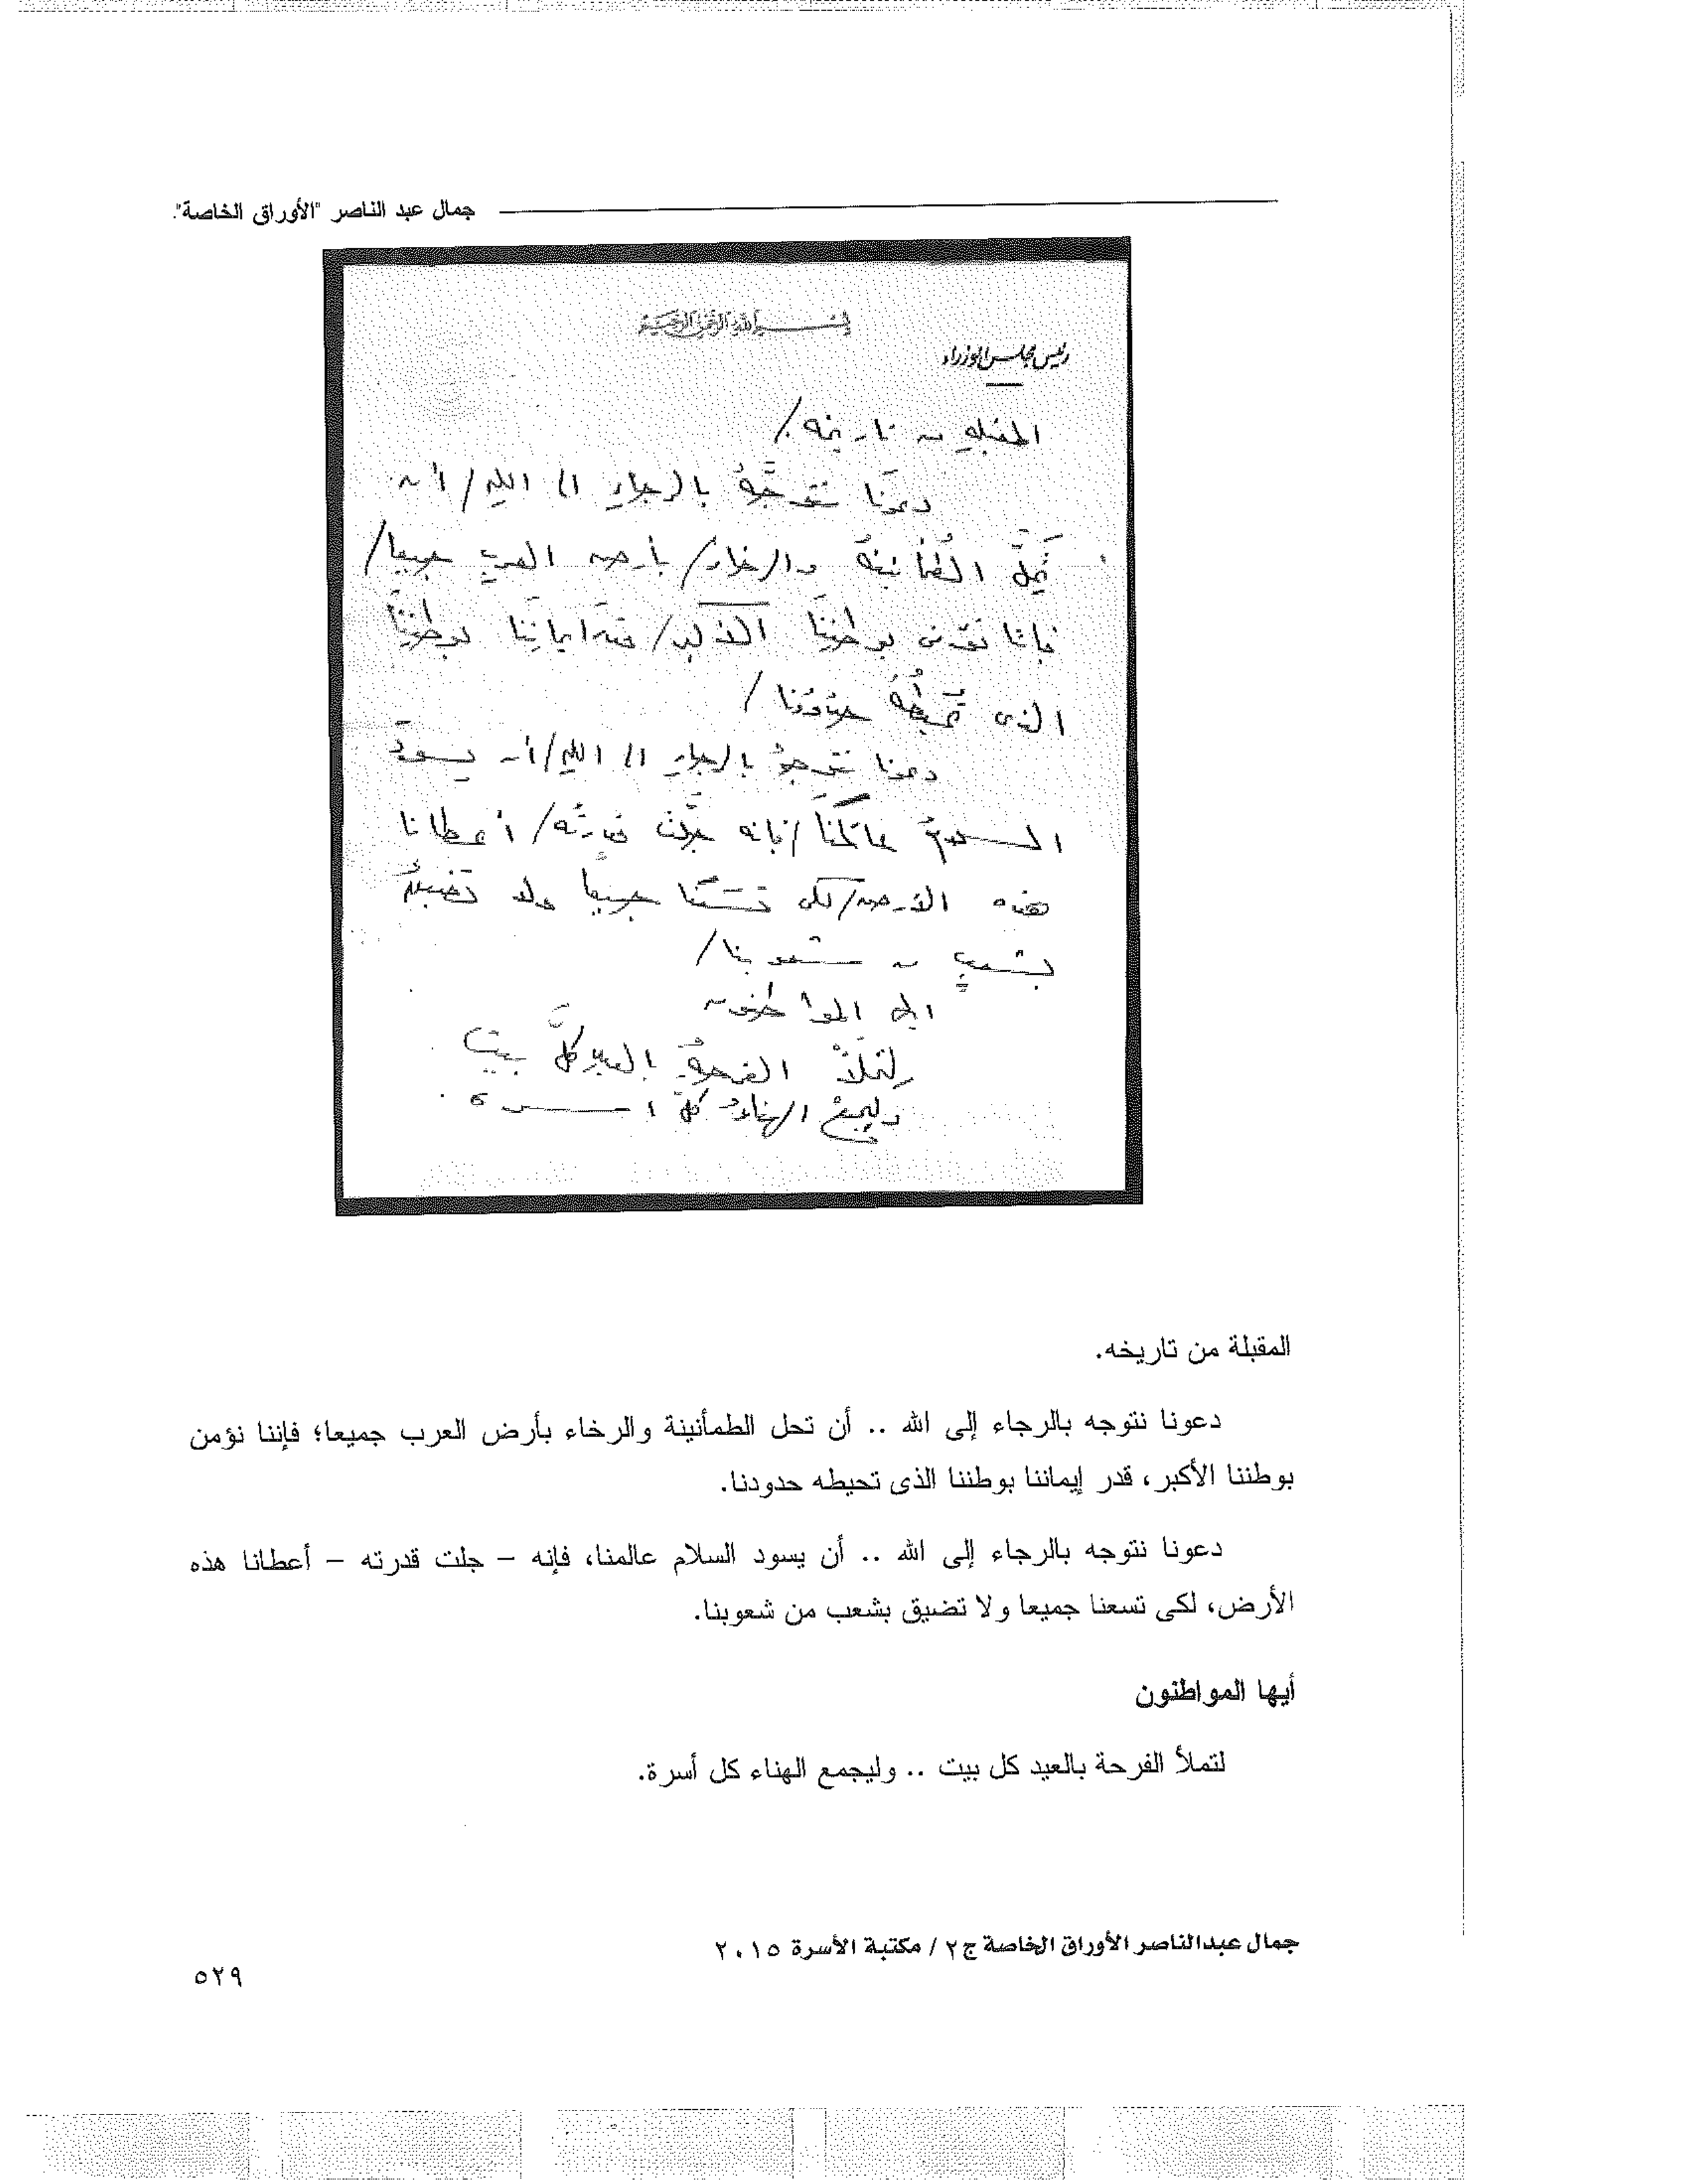 جمال عبد الناصر "الأوراق الخاصة".
بسم الله الرحمن الرحيم
رئيس مجلس الوزراء
المقبلة من تاريخه /
دعونا نتوجَّهُ بالرجاءِ الى اللهِ / أن
تَحِلَّ الطُمأنينةُ والرخاءُ / بأرضِ العربِ جميعا /
فإننا نؤمن بوطنِنَا الأكبر / قدر ايمانِنَا بوطنِنَا
الذى تُحيطُهُ حدودُنا /
دعونا نتوجهُ بالرجاءِ الى اللهِ / أن يسودَ
السلامُ عالمَنَا / فإنه جلَّت قدرتُه / أعطانا
هذه الأرض / لكى تَسَعَنا جميعا ولا تضيقُ
بشعبٍ من شعوبنا /
أيها المواطنون
لتملأْ الفرحةُ بالعيدِ كلَّ بيت
وليجمعْ الهناءُ كلَّ أسرة .
المقبلة من تاريخه.
دعونا نتوجه بالرجاء إلى الله .. أن تحل الطمأنينة والرخاء بأرض العرب جميعا؛ فإننا نؤمن
بوطننا الأكبر، قدر إيماننا بوطننا الذى تحيطه حدودنا.
دعونا نتوجه بالرجاء إلى الله .. أن يسود السلام عالمنا، فإنه – جلت قدرته – أعطانا هذه
الأرض، لكى تسعنا جميعا ولا تضيق بشعب من شعوبنا.
أيها المواطنون
لتملأ الفرحة بالعيد كل بيت .. وليجمع الهناء كل أسرة.
جمال عبدالناصر الأوراق الخاصة ج٢ / مكتبة الأسرة ٢٠١٥
٥٢٩